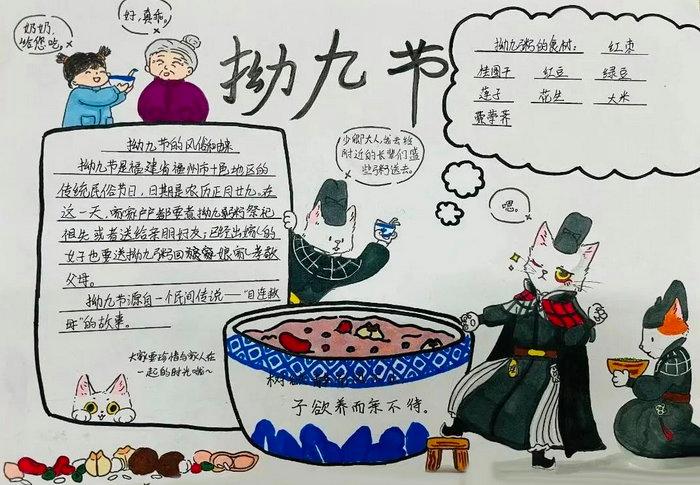 奶奶，
给您吃。
好，真乖。
拗九节
拗九粥的食材： 红枣
桂圆干 红豆 绿豆
莲子 花生 大米
荸荠
拗九节的风俗和由来
拗九节是福建省福州市十邑地区的
传统民俗节日，日期是农历正月廿九。在
这一天，家家户户都要煮拗九粥祭祀
祖先或者送给亲朋好友；已经出嫁的
女子也要送拗九粥回娘家孝敬
父母。
拗九节源自一个民间传说——“目连救
母”的故事。
大家要珍惜与家人在
一起的时光哦～
少卿大人，我去给
附近的长辈们盛
些粥送去。
嗯。
子欲养而亲不待。